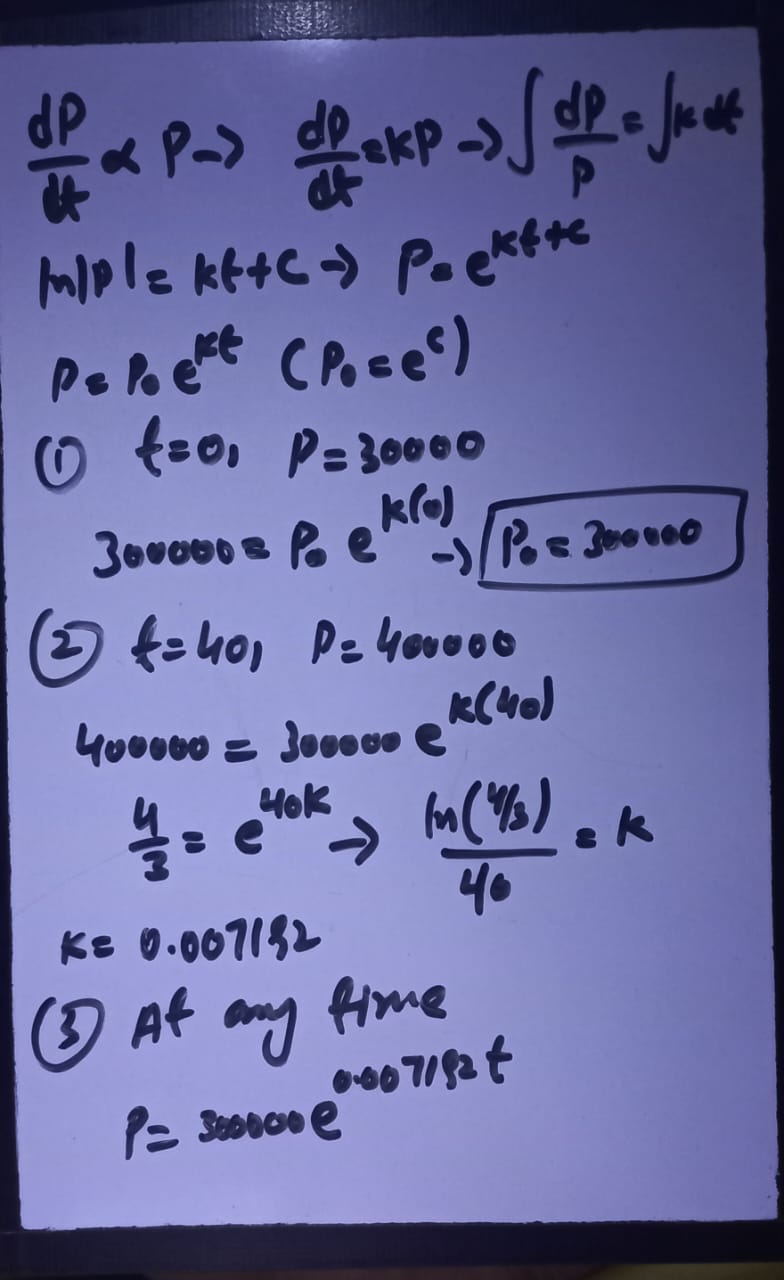 dP/dt ∝ P -> dp/dt = kP -> ∫ dp/P = ∫ k dt
ln|P| = kt+C -> P = e^{kt+c}
P = P₀ e^{kt} (P₀ = e^c)
① t=0, P=30000
300000 = P₀ e^{k(0)} -> P₀ = 300000
② t=40, P=400000
400000 = 300000 e^{k(40)}
4/3 = e^{40k} -> ln(4/3)/40 = k
K = 0.007192
③ At any time
P = 300000 e^{0.007192t}